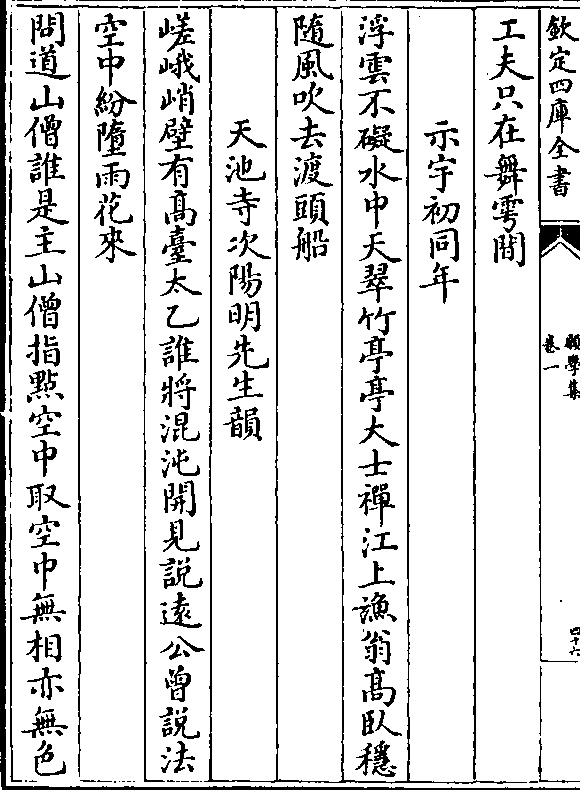 欽定四庫全書
願學集
卷一
四十六
工夫只在舞雩間
示宇初同年
浮雲不礙水中天翠竹亭亭大士禪江上漁翁高臥穩
隨風吹去渡頭船
天池寺次陽明先生韻
嵯峨峭壁有高臺太乙誰將混沌開見說遠公曾說法
空中紛墮雨花來
問道山僧誰是主山僧指點空中取空中無相亦無色